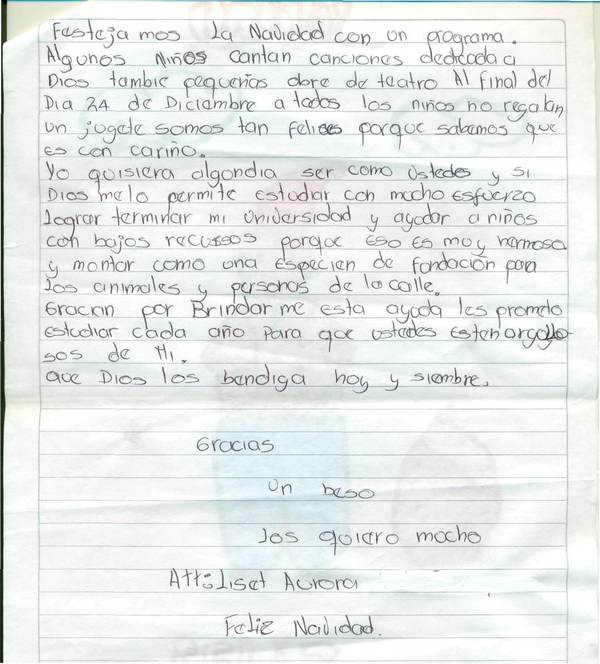 Festeja mos La Navidad con un programa.
Algunos Niños cantan canciones dedicada a
Dios tambie pequeños obre de teatro Al final del
Dia 24 de Diciembre a todos los niños no regalan
un jugete somos tan felices porque sabemos que
es con cariño.
Yo quisiera algondia ser como ustedes y si
Dios melo permite estudiar con mucho esfuerzo
lograr terminar mi universidad y ayudar a niños
con bajos recursos porque eso es muy hermoso
y montar como una especien de fundación para
los animales y personas de la calle.
Gracian por Brindar me esta ayuda les prometo
estudiar cada año para que ustedes esten orgullo-
sos de Mi.
que Dios los bendiga hoy y siembre.
Gracias
un beso
los quiero mucho
Att: Liset Aurora
Feliz Navidad.